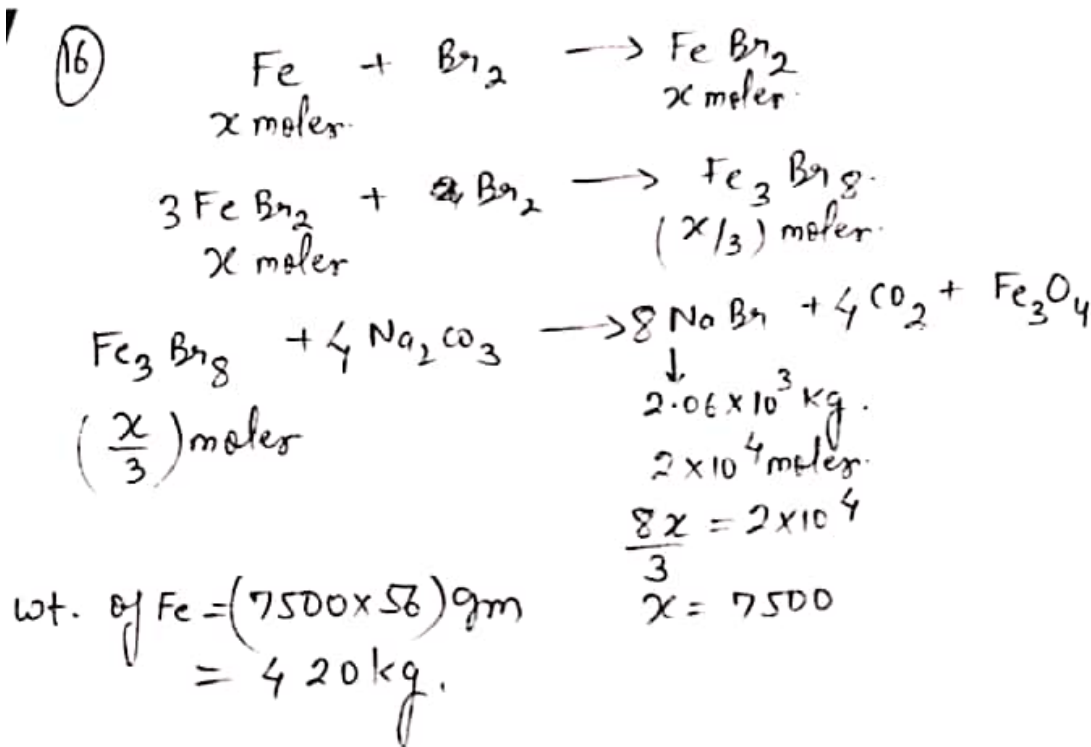 16
Fe + Br₂ → FeBr₂
x moles. x moles.
3FeBr₂ + Br₂ → Fe₃Br₈.
x moles (x/3) moles.
Fe₃Br₈ + 4Na₂CO₃ → 8NaBr + 4CO₂ + Fe₃O₄
(x/3) moles ↓ 2.06×10³ kg.
2×10⁴ moles.
8x/3 = 2×10⁴
x = 7500
wt. of Fe = (7500×56) gm
= 420 kg.